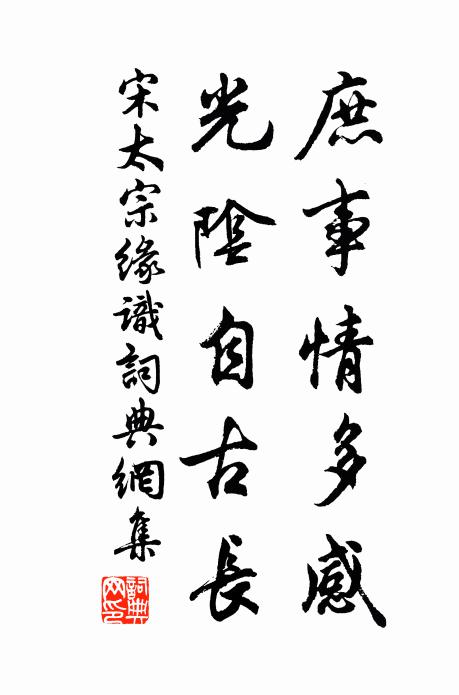 庶事情多感
光陰自古長
宋太宗緣識詞典網集
詞典網印